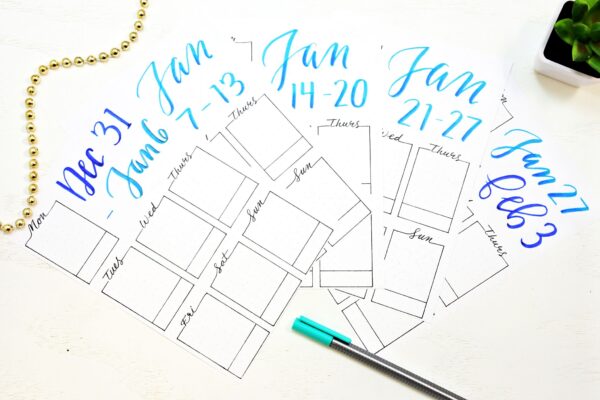 Dec 31
- Jan 6
Mon
Tues
Wed
Thurs
Fri
Sat
Sun
Jan
7-13
Thurs
Sun
Jan
14-20
Thurs
Jan
21-27
Wed
Thurs
Sun
Jan 27
Feb 3
Thurs